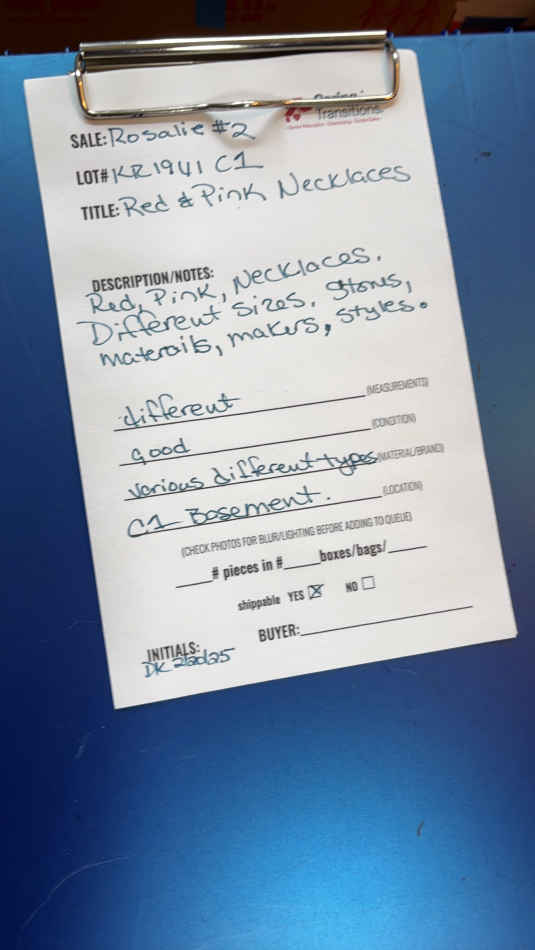 Transitions
SALE: Rosalie #2
LOT# KR1941 C1
TITLE: Red & Pink Necklaces
DESCRIPTION/NOTES:
Red, Pink, Necklaces.
Different sizes, stones,
materails, makers, styles.
different (MEASUREMENTS)
good (CONDITION)
various different types (MATERIAL/BRAND)
C1 Basement. (LOCATION)
(CHECK PHOTOS FOR BLUR/LIGHTING BEFORE ADDING TO QUEUE)
____# pieces in #____boxes/bags/____
shippable YES ☒ NO ☐
BUYER:
INITIALS:
DK 2/20/25